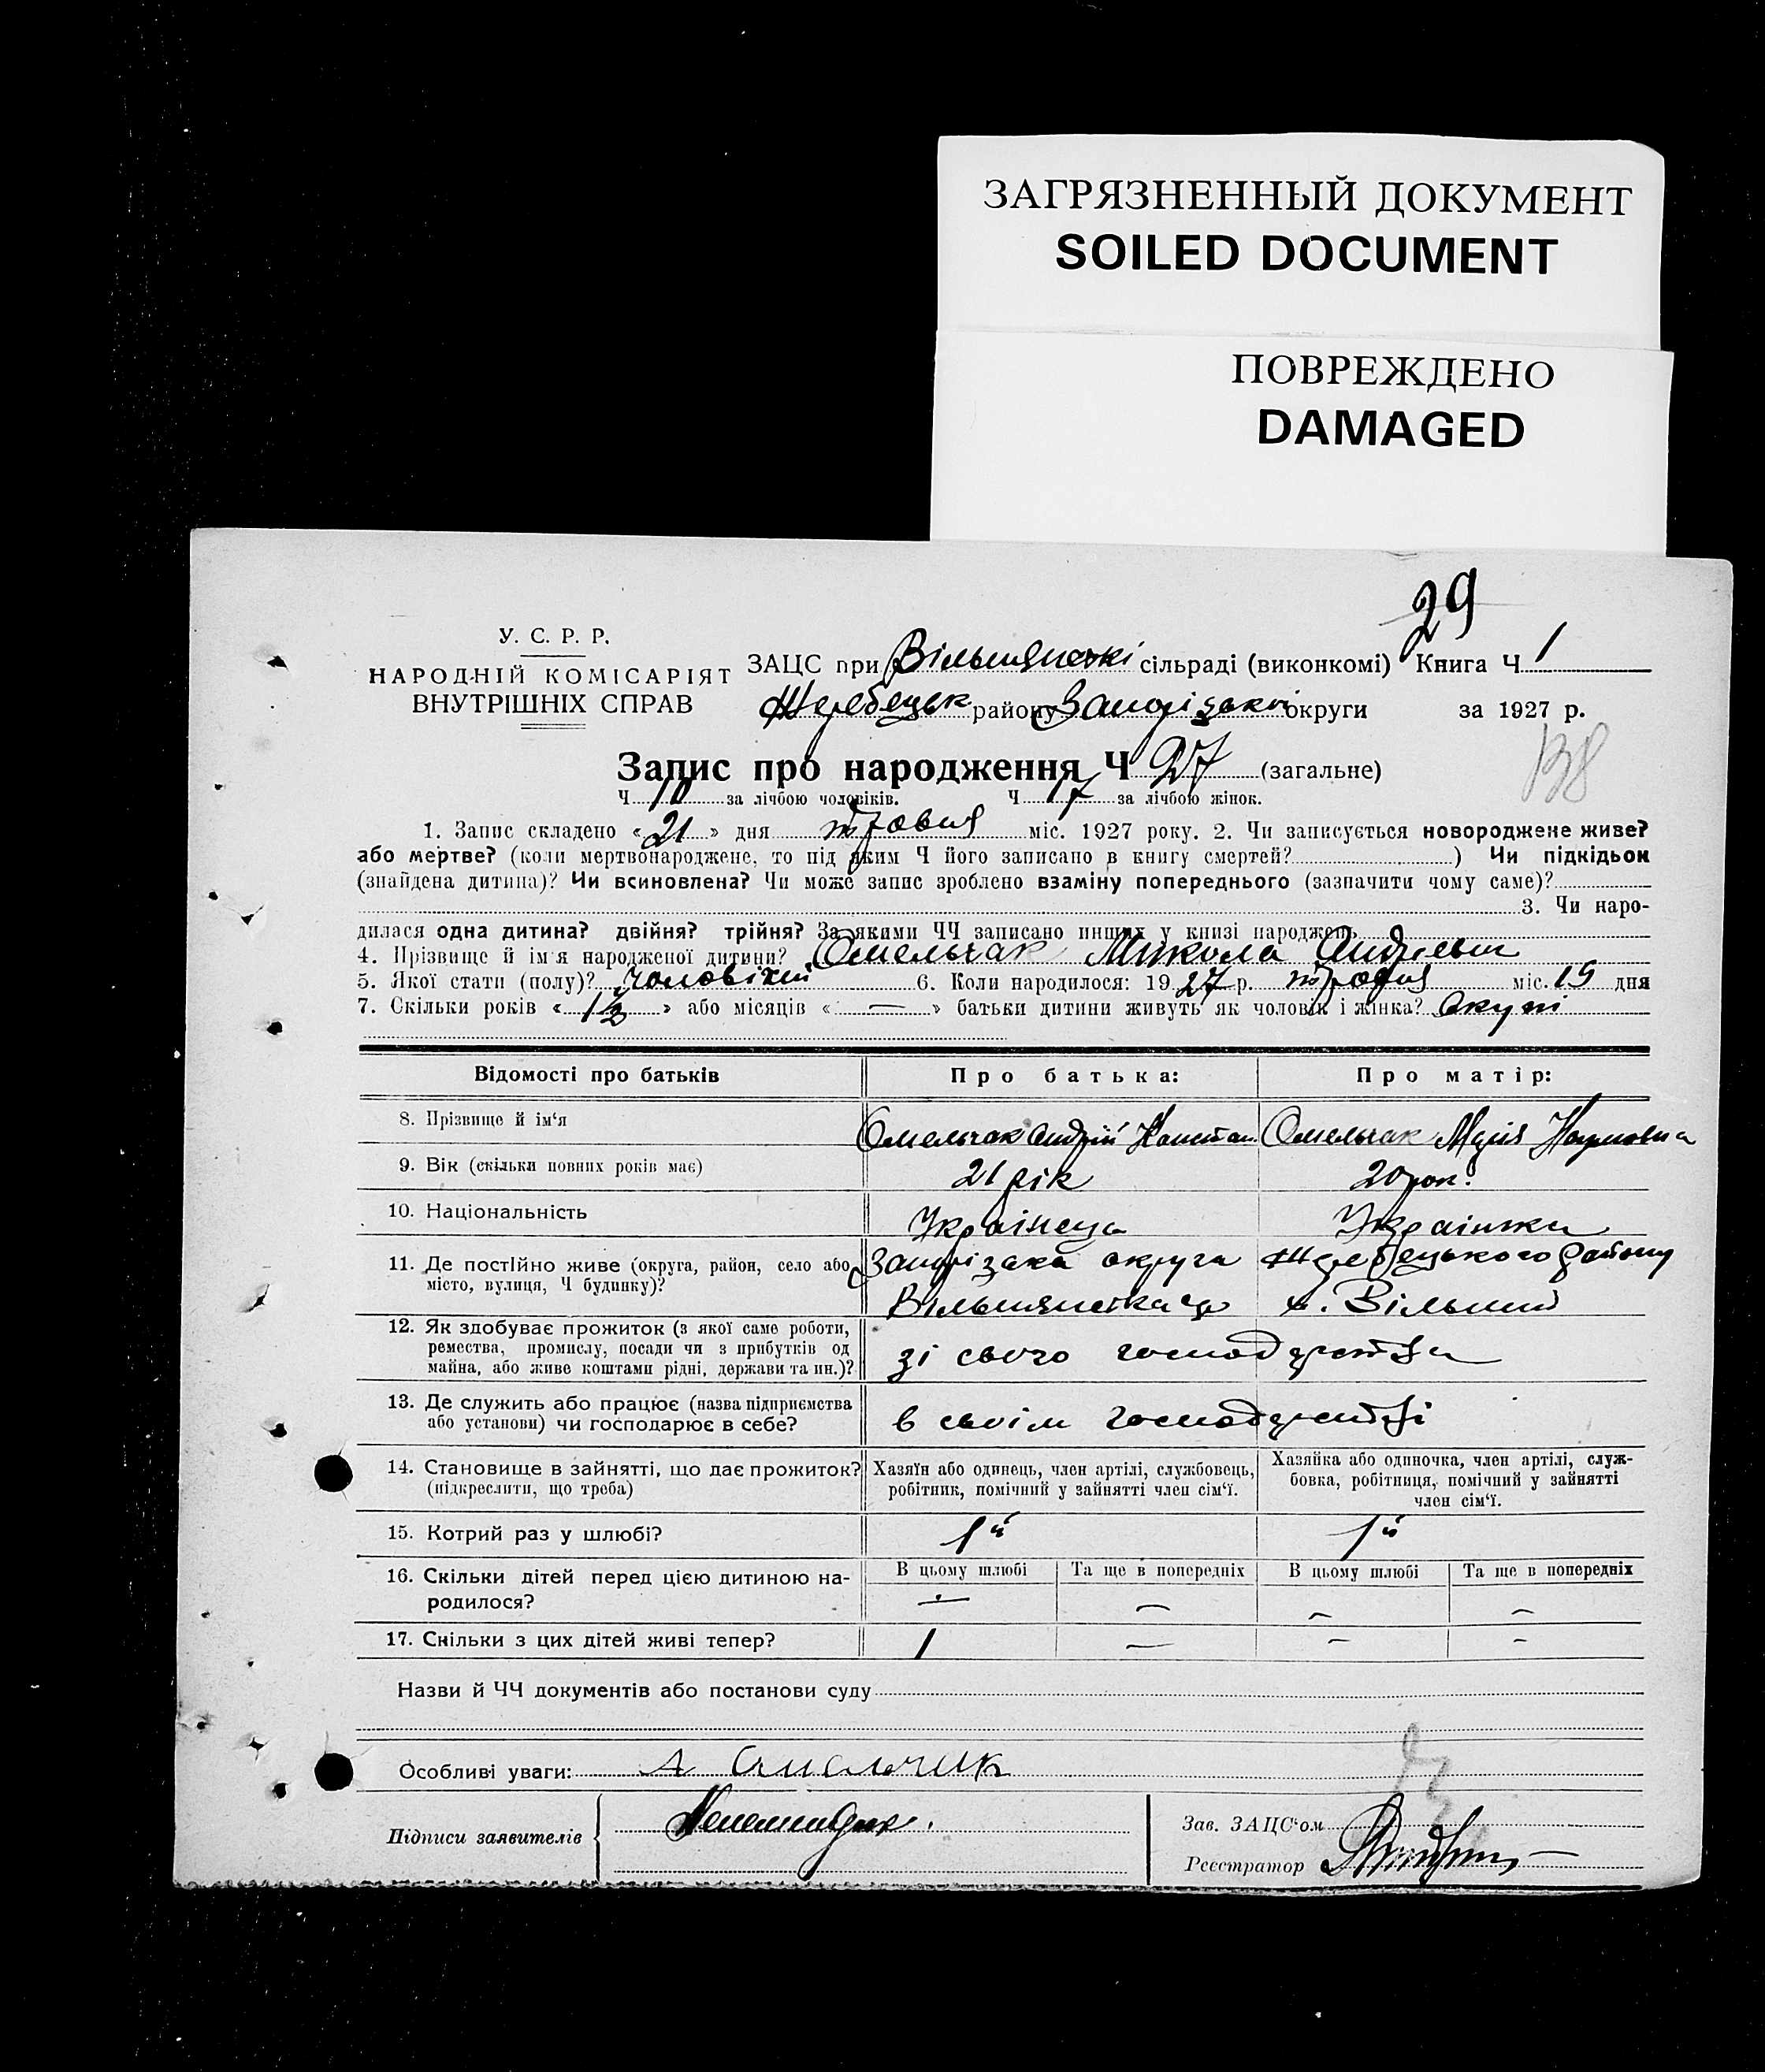 ЗАГРЯЗНЕННЫЙ ДОКУМЕНТ
SOILED DOCUMENT
ПОВРЕЖДЕНО
DAMAGED
29
У. С. Р. Р.
НАРОДНІЙ КОМІСАРІЯТ
ВНУТРІШНІХ СПРАВ
ЗАЦС при сільраді (виконкомі) Книга Ч 1
Жеребецьк району Запорізької округи за 1927 р.
138
Запис про народження Ч 27 (загальне)
Ч 10 за лічбою чоловіків. Ч 17 за лічбою жінок.
1. Запис складено « 21 » дня травня міс. 1927 року. 2. Чи записується новороджене живе?
або мертве? (коли мертвонароджене, то під яким Ч його записано в книгу смертей? ) Чи підкідьок
(знайдена дитина)? Чи всиновлена? Чи може запис зроблено взаміну попереднього (зазначити чому саме)?
3. Чи наро-
дилася одна дитина? двійня? трійня? За якими ЧЧ записано инших у книзі народжень
4. Прізвище й ім'я народженої дитини? Омельчак Микола Андрієвич
5. Якої статі (полу)? чоловічої 6. Коли народилося: 19 27 р. травня міс. 19 дня
7. Скільки років « 1 1/2 » або місяців « — » батьки дитини живуть як чоловік і жінка? вкупі
Відомості про батьків Про батька: Про матір:
8. Прізвище й ім'я Омельчак Андрій Констан. Омельчак Марія Наумовна
9. Вік (скільки повних років має) 21 рік 20 рок.
10. Національність Українець Українка
11. Де постійно живе (округа, район, село або Запорізька округа Жеребецького району
місто, вулиця, Ч будинку)? х. Вільний
12. Як здобуває прожиток (з якої саме роботи,
ремества, промислу, посади чи з прибутків од
майна, або живе коштами рідні, держави та ин.)? зі свого господарства
13. Де служить або працює (назва підприємства
або установи) чи господарює в себе? в своїм господарстві
14. Становище в зайнятті, що дає прожиток? Хазяїн або одинець, член артілі, службовець, Хазяйка або одиночка, член артілі, служ-
(підкреслити, що треба) робітник, помічний у зайнятті член сім'ї. бовка, робітниця, помічний у зайнятті
член сім'ї.
15. Котрий раз у шлюбі? 1й 1й
16. Скільки дітей перед цією дитиною на- В цьому шлюбі Та ще в попередніх В цьому шлюбі Та ще в попередніх
родилося? — — — —
17. Скільки з цих дітей живі тепер? 1 — — —
Назви й ЧЧ документів або постанови суду
Особливі уваги: А Омельчик
Підписи заявителів
Зав. ЗАЦС'ом
Реєстратор